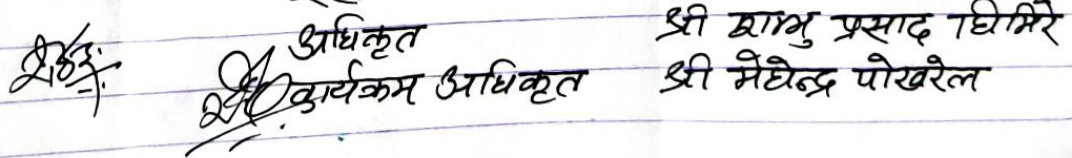 अधिकृत श्री शम्भु प्रसाद घिमिरे
कार्यक्रम अधिकृत श्री मेघेन्द्र पोखरेल